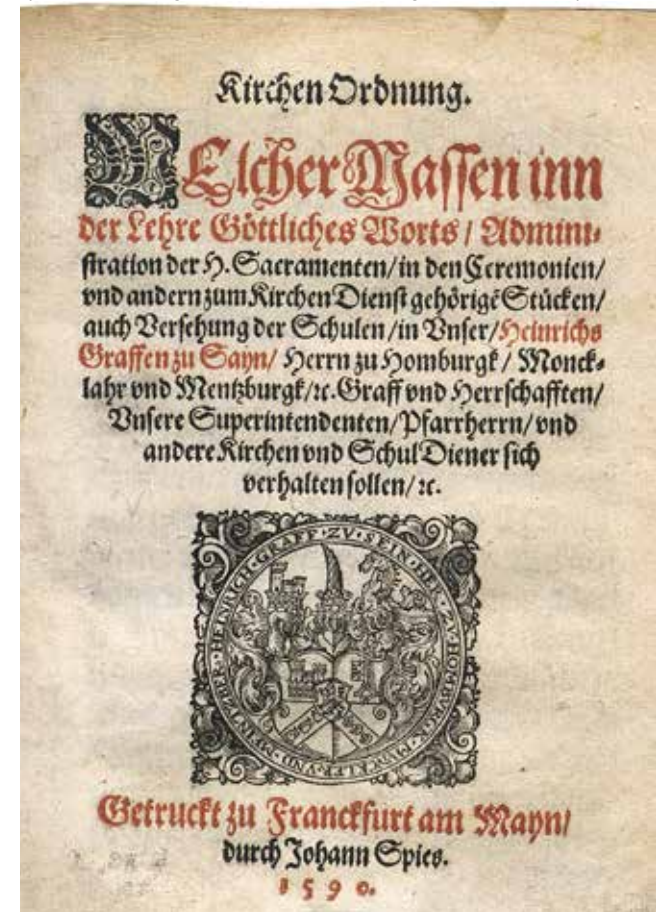 Kirchen Ordnung.
WElcher Massen inn
der Lehre Göttliches Worts / Admini-
stration der H. Sacramenten / in den Ceremonien /
vnd andern zum Kirchen Dienst gehörigẽ Stücken /
auch Versehung der Schulen / in Vnser / Heinrichs
Graffen zu Sayn / Herrn zu Homburgk / Monck-
lahr vnd Mentzburgk / ꝛc. Graff vnd Herrschafften /
Vnsere Superintendenten / Pfarrherrn / vnd
andere Kirchen vnd Schul Diener sich
verhalten sollen / ꝛc.
HEINRICH · GRAFF · ZV · SEIN · HER · ZV · HOMBVRGK · VND · MEINTZBER
Getruckt zu Franckfurt am Mayn /
durch Johann Spies.
1590.